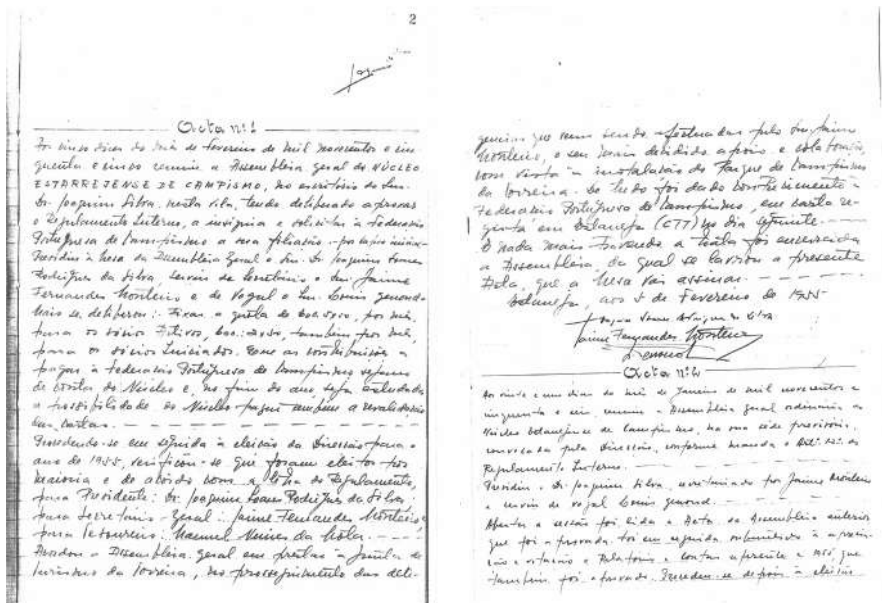 2
Acta nº 1
Aos cinco dias do mês de Fevereiro de mil novecentos e cin
quenta e cinco reuniu a Assembleia geral do NÚCLEO
ESTARREJENSE DE CAMPISMO, no escritório do Snr.
Dr. Joaquim Silva, nesta vila, tendo deliberado aprovar
o Regulamento Interno, a insígnia e solicitar à Federação
Portuguesa de Campismo a sua filiação.
Presidiu à Mesa da Assembleia Geral o Snr. Dr. Joaquim Soares
Rodrigues da Silva, serviu de Secretário o Snr. Jaime
Fernandes Monteiro e de Vogal o Snr. Louis
Mais se deliberou: Fixar a quota de por mês,
para os sócios Activos, também por mês,
para os sócios Iniciados. Que as contribuições a
pagar à Federação Portuguesa de Campismo sejam
de conta do Núcleo e, no fim do ano, seja estudada
a possibilidade do Núcleo pagar também a revalidação
das cartas.
Procedendo-se em seguida à eleição da Direcção para o
ano de 1955, verificou-se que foram eleitos por
maioria e de acordo com a letra do Regulamento,
para Presidente: Dr. Joaquim Soares Rodrigues da Silva
para Secretário-Geral: Jaime Fernandes Monteiro
para Tesoureiro: Manuel Nunes da
a Assembleia geral em à Junta de
Turismo da Torreira, no prosseguimento das dili-
gencias que vem sendo efectuadas pelo Snr. Jaime
Monteiro, o seu mais decidido apoio e colaboração
com vista à instalação do Parque de Campismo
da Torreira. De tudo foi dado conhecimento à
Federação Portuguesa de Campismo, em carta re-
gistada em Estarreja (CTT) no dia seguinte.
E nada mais havendo a tratar foi encerrada
a Assembleia, da qual se lavrou a presente
Acta, que a Mesa vai assinar.
Estarreja, aos 5 de Fevereiro de 1955
Joaquim Soares Rodrigues da Silva
Jaime Fernandes Monteiro
Acta nº
Ao vinte e um dias do mês de Janeiro de mil novecentos e
cinquenta e reuniu a Assembleia geral ordinária do
Núcleo Estarrejense de Campismo, na sua sede provisória,
convocada pela Direcção, conforme manda o do
Regulamento Interno.
Presidiu o Dr. Joaquim Silva, secretariado por Jaime Monteiro
e serviu de vogal Louis
Aberta a sessão foi lida a Acta da Assembleia anterior
que foi aprovada. Foi em seguida submetido à aprecia-
ção e votação o Relatório e contas que
também foi aprovado. Procedeu-se depois à eleição